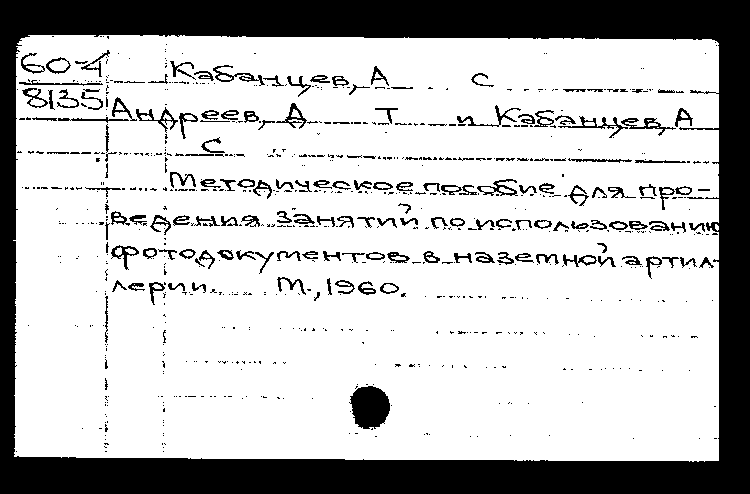 60-4 Кабанцев, А С
8135 Андреев, А Т и Кабанцев, А
С
Методическое пособие для про-
ведения занятий по использованию
фотодокументов в наземной артил-
лерии. М., 1960.